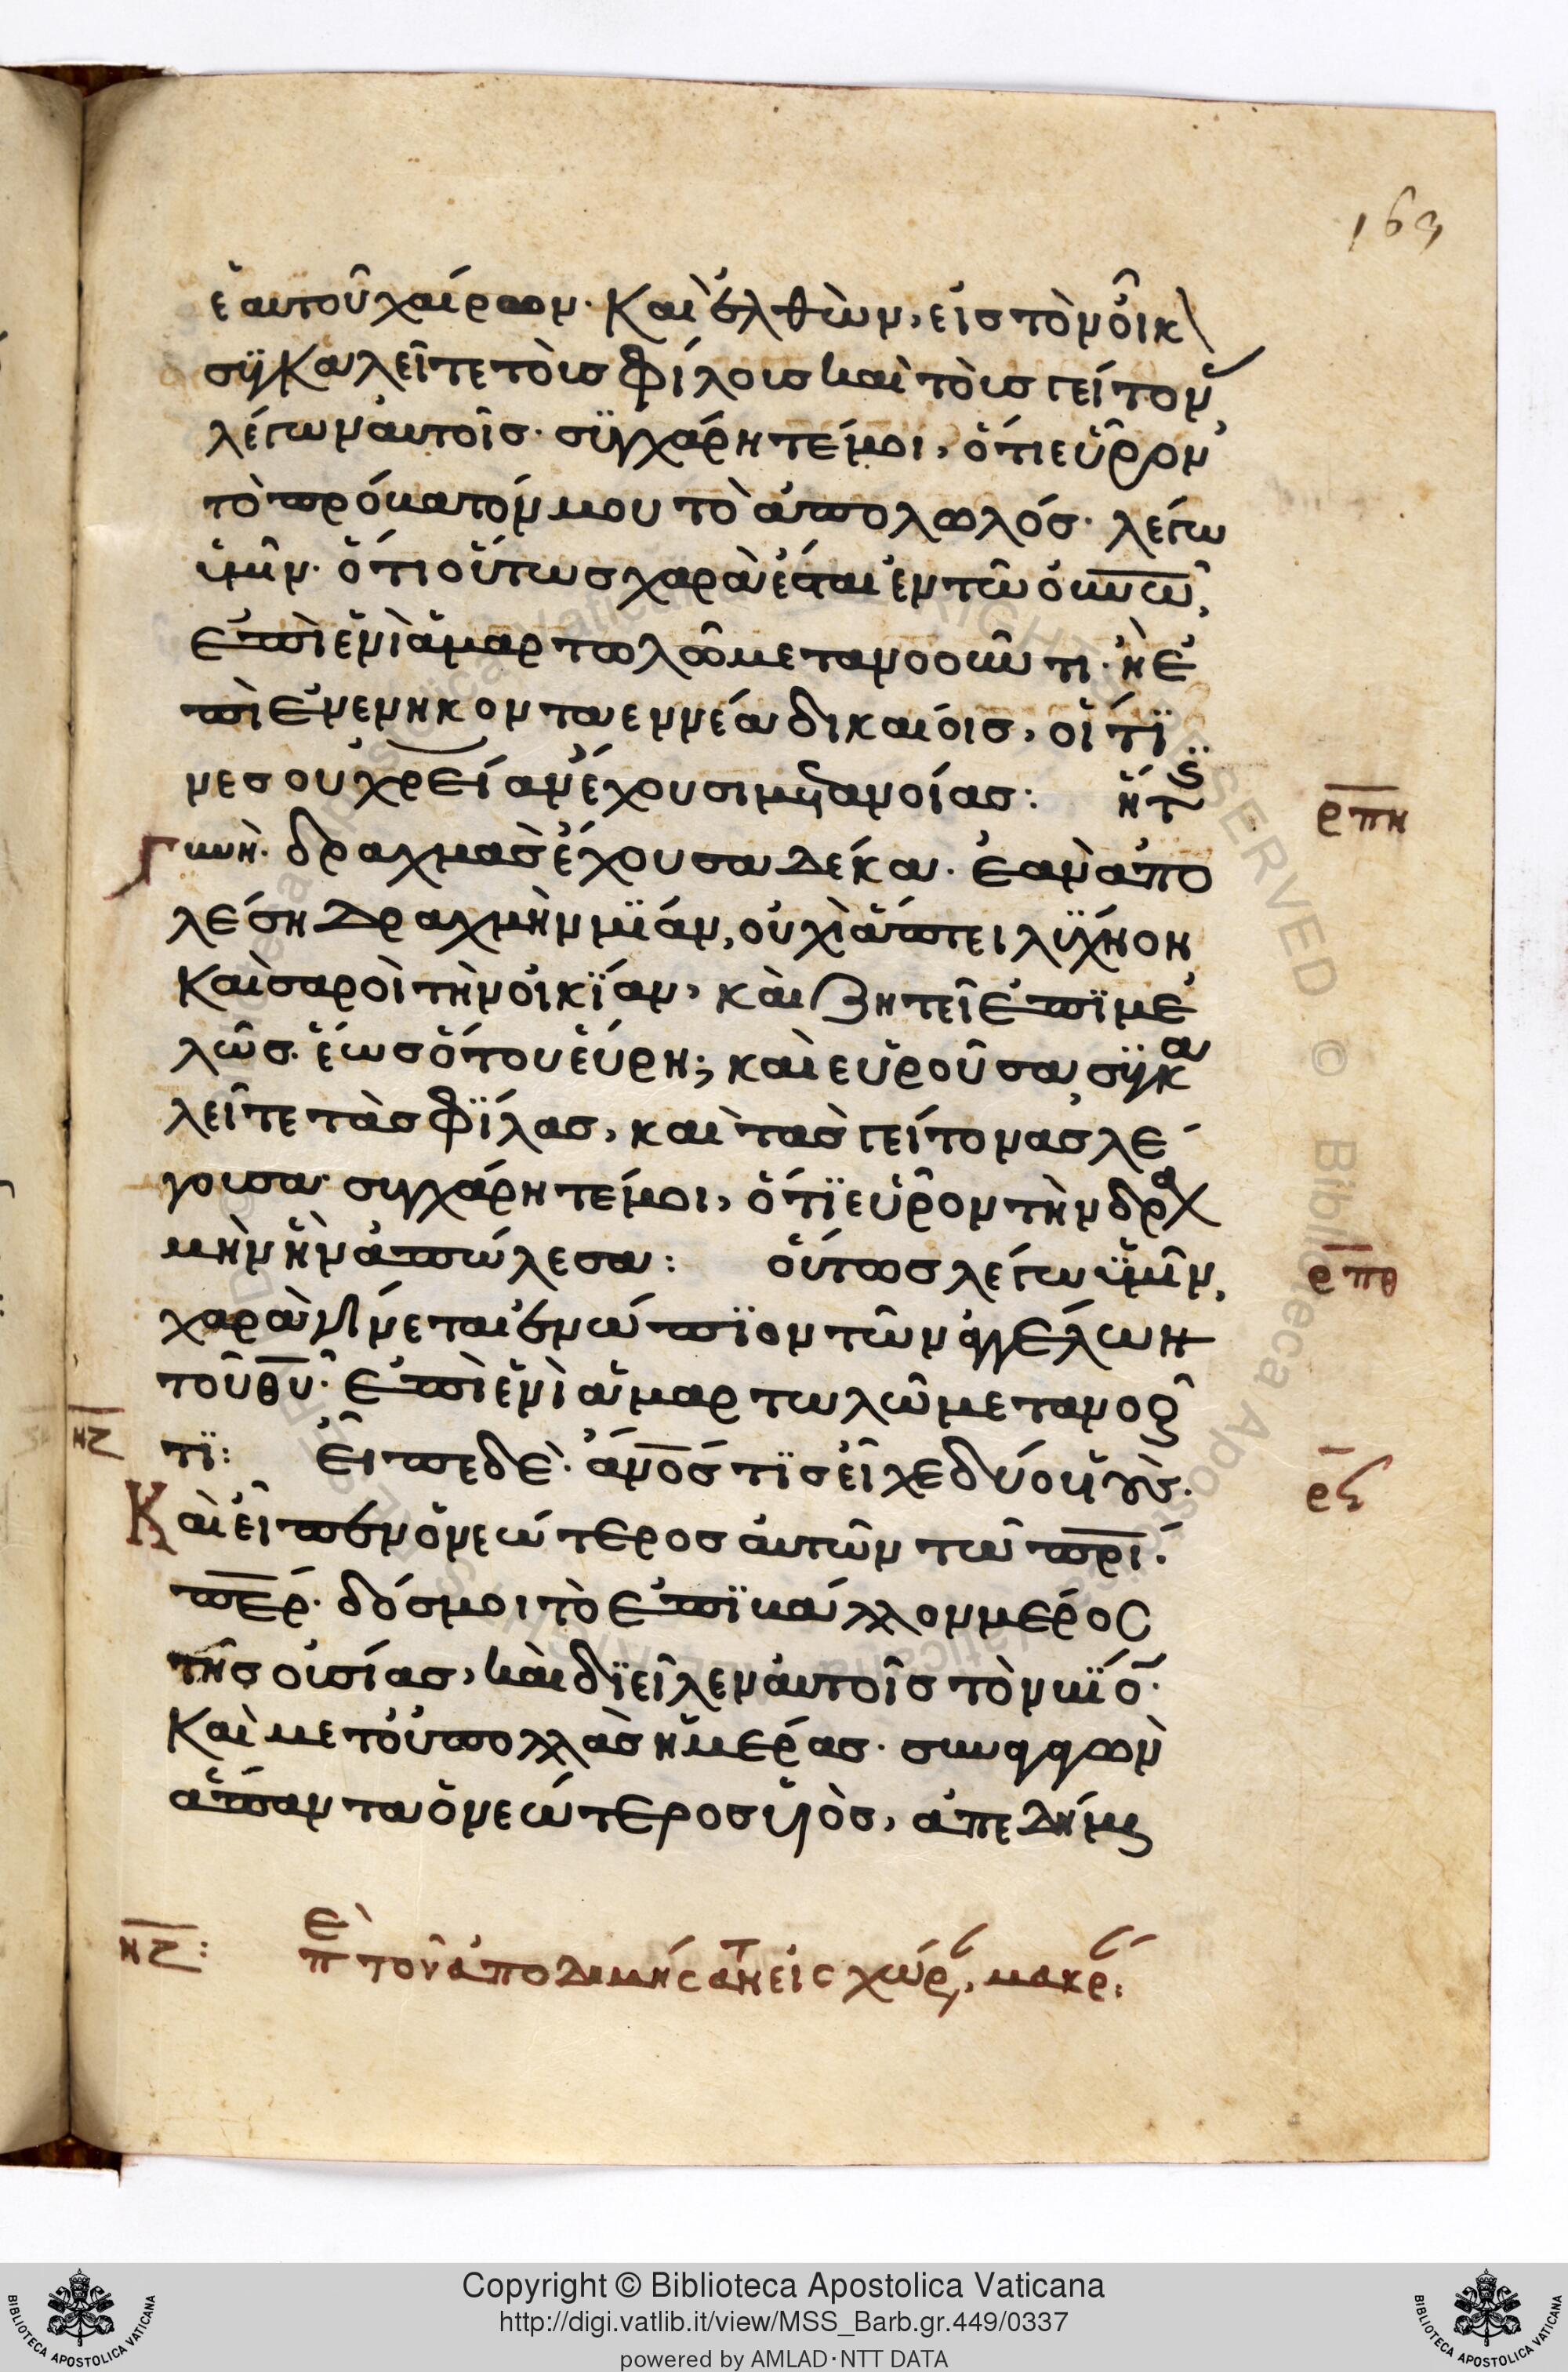 163
ἑαυτοῦ χαίρων· Καὶ ἐλθὼν, εἰς τὸν οἶκ
συγκαλεῖτε τοῖς φίλοις καὶ τοῖς γείτον
λέγων αὐτοῖς· συγχάρητέ μοι, ὅτι εὗρον
τὸ πρόβατόν μου τὸ ἀπολωλός· λέγω
ὑμῖν· ὅτι οὕτως χαρὰ ἔσται ἐν τῶ οὐνῶ,
ἐπὶ ἑνὶ ἁμαρτωλῶ μετανοοῦντι· ἢ ἐ
πὶ ἐνενηκονταεννέα δικαίοις, οἵ τϊ
νες οὐ χρείαν ἔχουσι μετανοίας: ἢ τς
ρπη
Γυνὴ· δραχμὰς ἔχουσα δέκα· ἐὰν ἀπο
λέση δραχμὴν μϊάν, οὐχὶ ἅπτει λύχνον
Καὶ σαροὶ τὴν οἰκΐαν, καὶ ζητεῖ ἐπϊμε
λῶς· ἕως ὅτου εὕρη; καὶ εὑροῦσα, συγκα
λεῖτε τὰς φΐλας, καὶ τὰς γείτονας λέ
γουσα· συγχάρητέ μοι, ὅτϊ εὗρον τὴν δραχ
μὴν ἣν ἀπώλεσα: οὕτως λέγω ὑμῖν,
ρπθ
χαρὰ γίνεται ἐνώπϊον τῶν ἀγγέλων
τοῦ θυ· ἐπὶ ἑνὶ ἁμαρτωλῶ μετανοοῦ
νζ
τϊ: εἶπε δὲ· ἀνος τϊς εἶχε δύο υἱοὺς·
ρϟ
Καὶ εἶπεν ὁ νεώτερος αὐτῶν τῶ πρι·
περ· δός μοι τὸ ἐπϊβάλλον μέρος
τῆς οὐσίας, καὶ διεῖλεν αὐτοῖς τὸν βίο·
Καὶ μετ' οὐ πολλὰς ἡμέρας· συναγαγὼν
ἅπαντα ὁ νεώτερος υἱὸς, ἀπεδήμη
νζ: πε τοῦ ἀποδημήσαντ εἰς χώρ, μακρ:
Copyright © Biblioteca Apostolica Vaticana
http://digi.vatlib.it/view/MSS_Barb.gr.449/0337
powered by AMLAD·NTT DATA
BIBLIOTECA APOSTOLICA VATICANA
BIBLIOTECA APOSTOLICA VATICANA